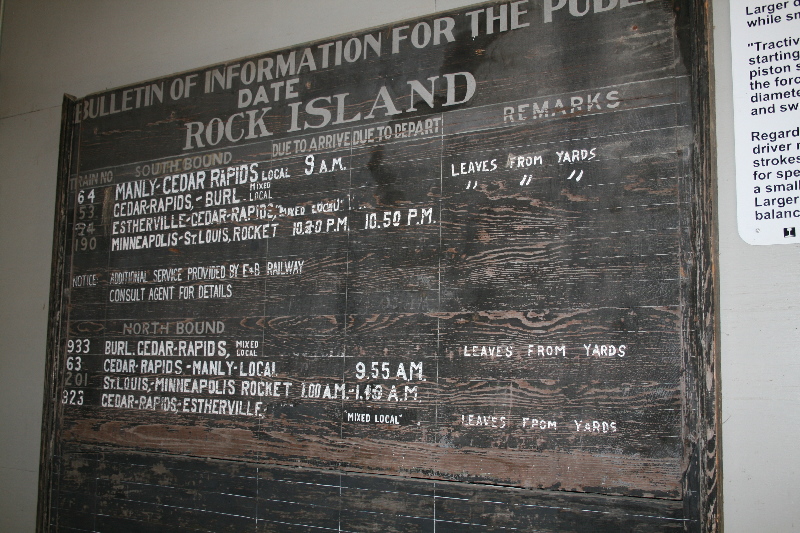 BULLETIN OF INFORMATION FOR THE
DATE
ROCK ISLAND
TRAIN NO SOUTH BOUND DUE TO ARRIVE DUE TO DEPART REMARKS
64 MANLY-CEDAR RAPIDS LOCAL 9 A.M. LEAVES FROM YARDS
53 CEDAR-RAPIDS,-BURL. MIXED LOCAL " " "
ESTHERVILLE-CEDAR-RAPIDS, "MIXED LOCAL"
190 MINNEAPOLIS-ST.LOUIS, ROCKET 10.20 P.M. 10.50 P.M.
NOTICE: ADDITIONAL SERVICE PROVIDED BY E&B RAILWAY
CONSULT AGENT FOR DETAILS
NORTH BOUND
933 BURL. CEDAR-RAPIDS, MIXED LOCAL LEAVES FROM YARDS
63 CEDAR-RAPIDS-MANLY-LOCAL 9.55 AM.
201 ST.LOUIS,-MINNEAPOLIS ROCKET 1.00 A.M.-1.10 A.M.
823 CEDAR-RAPIDS-ESTHERVILLE. "MIXED LOCAL" LEAVES FROM YARDS
Larger
while
"Tractiv
starting
piston
the forc
diamete
and sw
Regard
driver
strokes
for spe
a small
Larger
balanc